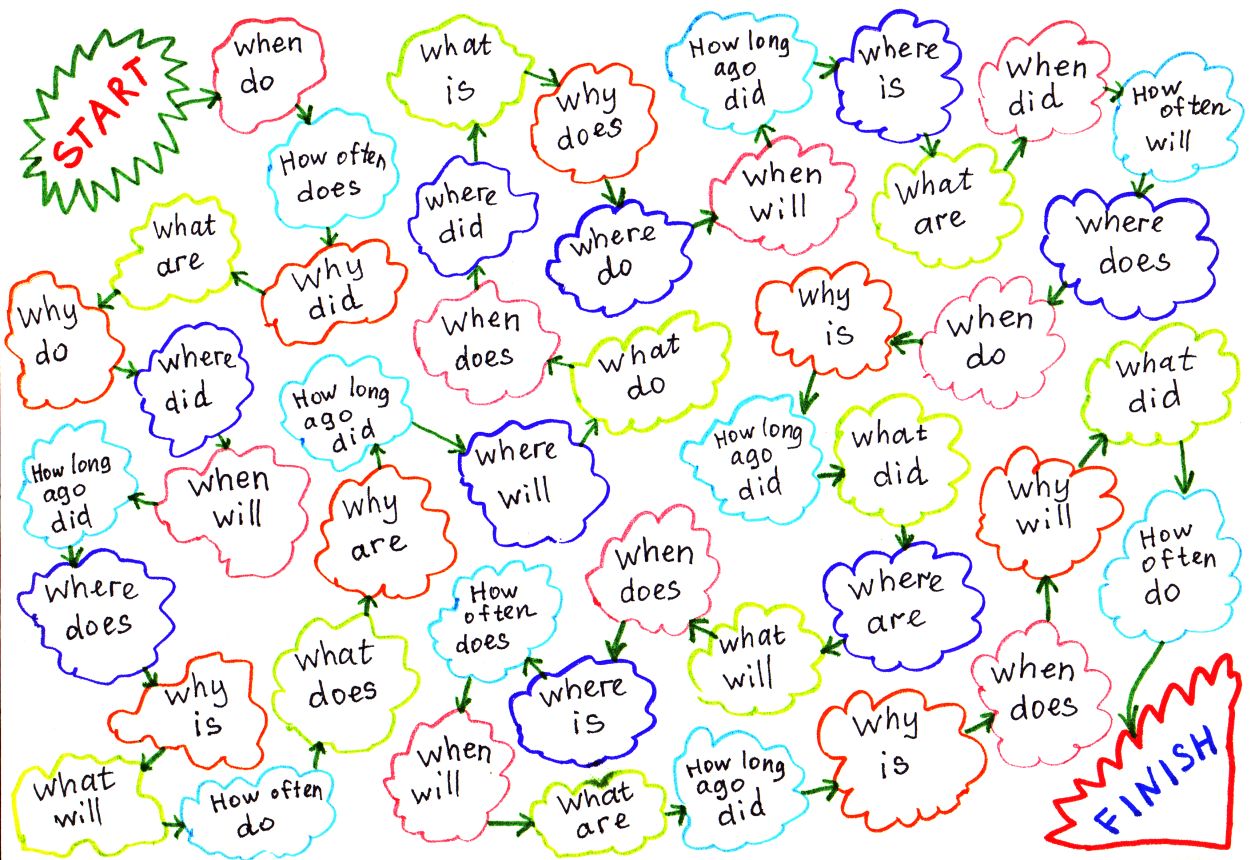 START
when
do
How often
does
why
did
what
are
why
do
where
did
when
will
How long
ago
did
where
does
why
is
what
will
How often
do
what
does
why
are
How long
ago
did
where
will
what
do
when
does
where
did
what
is
why
does
where
do
when
will
How long
ago
did
where
is
what
are
when
did
How
often
will
where
does
when
do
why
is
How long
ago
did
what
did
where
are
what
will
when
does
where
is
How
often
does
when
will
what
are
How long
ago
did
why
is
when
does
why
will
what
did
How
often
do
FINISH